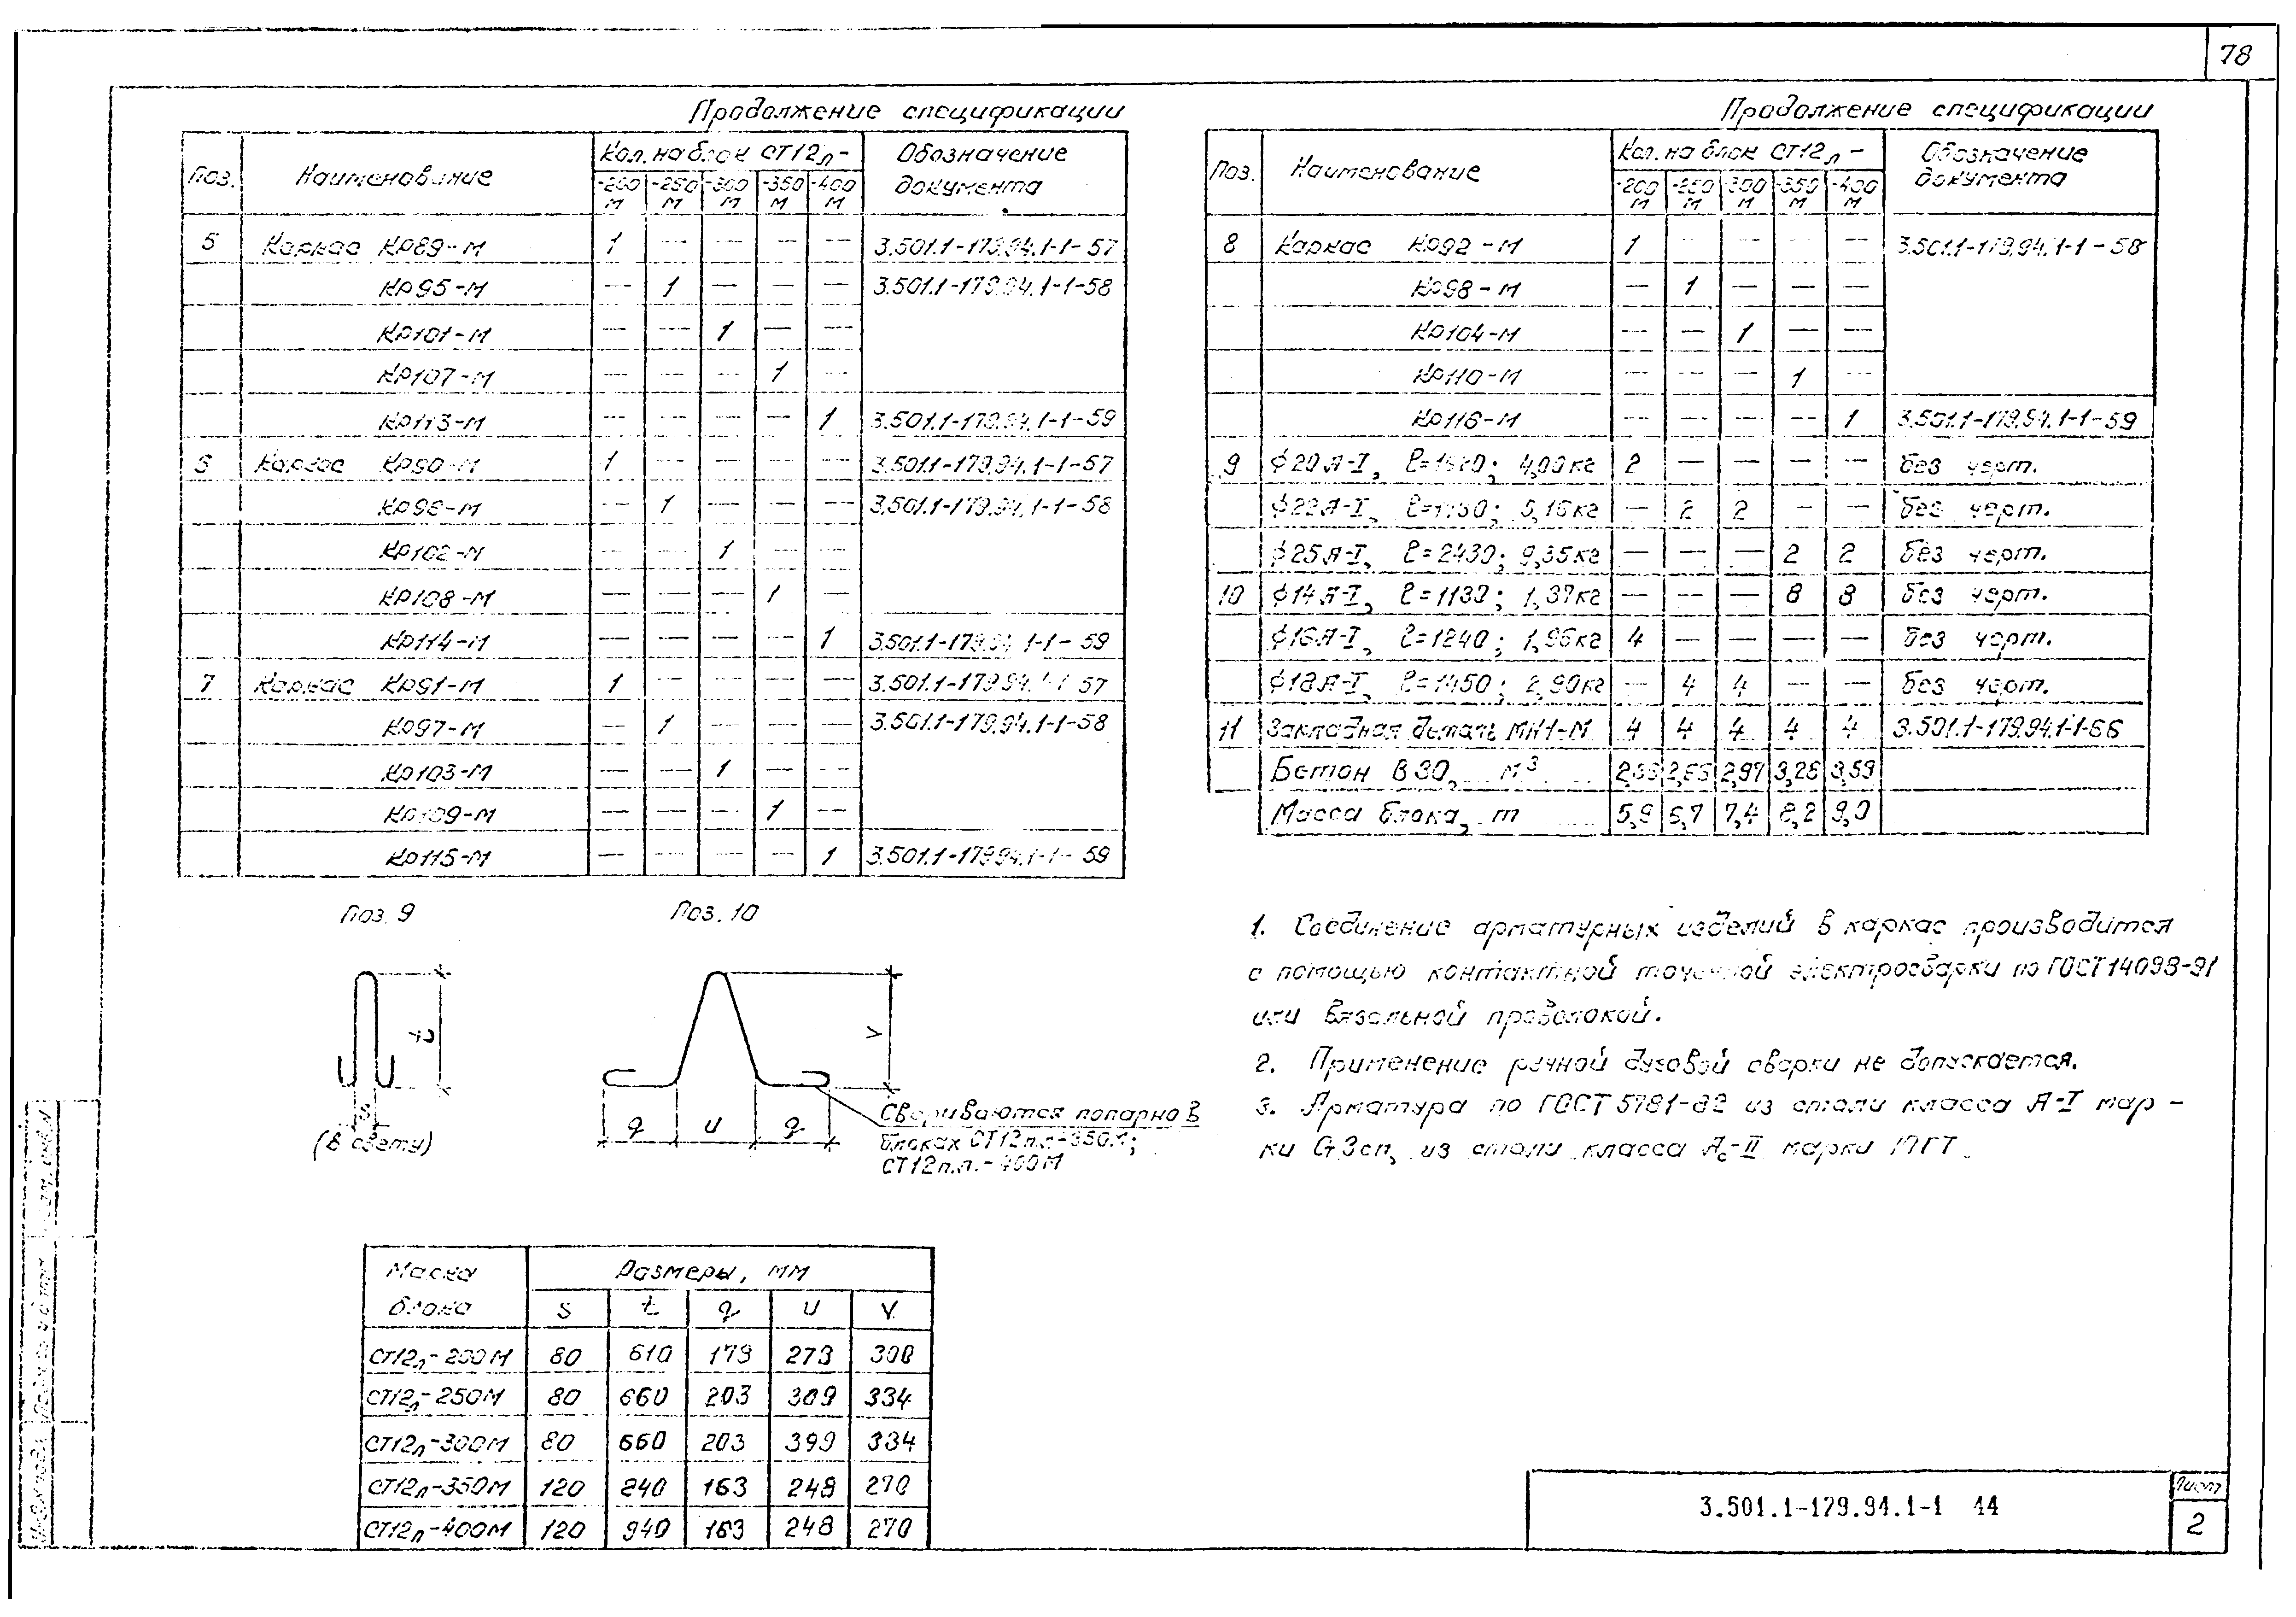 78
Продолжение спецификации
Поз. Наименование Кол. на блок СТ12л- Обозначение документа
-200М -250М -300М -350М -400М
5 Каркас Кр89-М 1 — — — — 3.501.1-179.94.1-1-57
Кр95-М — 1 — — — 3.501.1-179.94.1-1-58
Кр101-М — — 1 — —
Кр107-М — — — 1 —
Кр113-М — — — — 1 3.501.1-179.94.1-1-59
6 Каркас Кр90-М 1 — — — — 3.501.1-179.94.1-1-57
Кр96-М — 1 — — — 3.501.1-179.94.1-1-58
Кр102-М — — 1 — —
Кр108-М — — — 1 —
Кр114-М — — — — 1 3.501.1-179.94.1-1-59
7 Каркас Кр91-М 1 — — — — 3.501.1-179.94.1-1-57
Кр97-М — 1 — — — 3.501.1-179.94.1-1-58
Кр103-М — — 1 — —
Кр109-М — — — 1 —
Кр115-М — — — — 1 3.501.1-179.94.1-1-59
Продолжение спецификации
Поз. Наименование Кол. на блок СТ12л- Обозначение документа
-200М -250М -300М -350М -400М
8 Каркас Кр92-М 1 — — — — 3.501.1-179.94.1-1-58
Кр98-М — 1 — — —
Кр104-М — — 1 — —
Кр110-М — — — 1 —
Кр116-М — — — — 1 3.501.1-179.94.1-1-59
9 ϕ20А-I, ; 4,00кг 2 — — — — без черт.
ϕ22А-I, ; 5,16кг — 2 2 — — без черт.
ϕ25А-I, ℓ=2430; 9,35кг — — — 2 2 без черт.
10 ϕ14А-I, ℓ=1130; 1,37кг — — — 8 8 без черт.
ϕ16А-I, ℓ=1240; 1,96кг 4 — — — — без черт.
ϕ18А-I, ℓ=1450; 2,90кг — 4 4 — — без черт.
11 Закладная деталь МН1-М 4 4 4 4 4 3.501.1-179.94.1-1-66
Бетон В30, м³ 2,97 3,26 3,59
Масса блока, т 5,9 6,7 7,4 8,2 9,0
Поз. 9
t
s
(в свету)
Поз. 10
v
q u q
Свариваются попарно в
блоках СТ12п.л.-350М;
СТ12п.л.-400М
1. Соединение арматурных изделий в каркас производится
с помощью контактной точечной электросварки по ГОСТ 14098-91
или вязальной проволокой.
2. Применение ручной дуговой сварки не допускается.
3. Арматура по ГОСТ 5781-82 из стали класса А-I мар-
ки Ст3сп, из стали класса Ас-II марки 10ГТ.
Марка блока Размеры, мм
s t q u v
СТ12л-200М 80 610 179 273 308
СТ12л-250М 80 660 203 309 334
СТ12л-300М 80 660 203 399 334
СТ12л-350М 120 240 163 248 270
СТ12л-400М 120 940 163 248 270
3.501.1-179.94.1-1 44
Лист
2